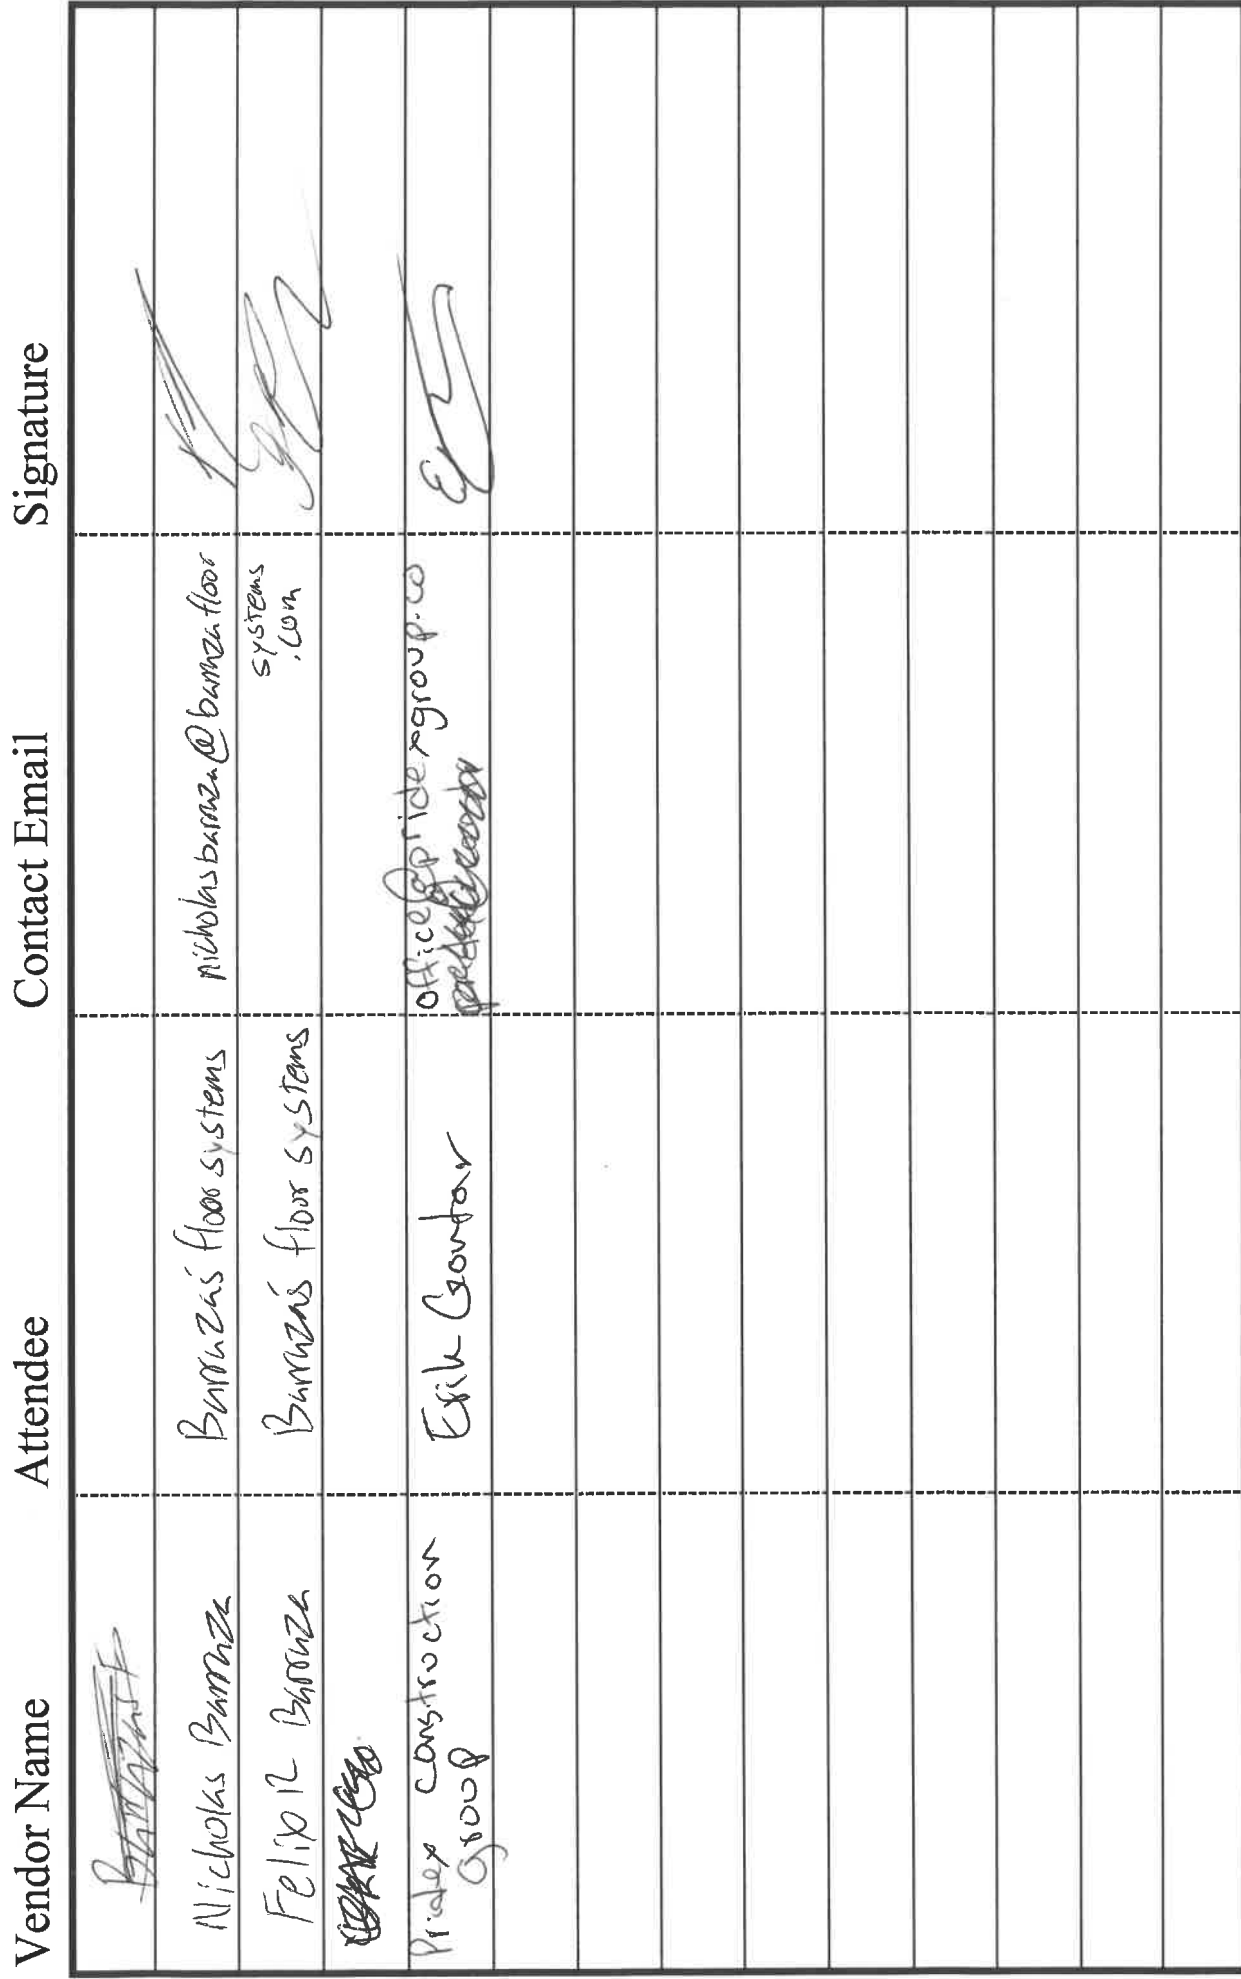 Vendor Name Attendee Contact Email Signature
Nicholas Barraza Barraza's floor systems nicholasbarraza@barrazafloor
systems
.com
Felix R Barraza Barraza's floor systems
Pridex construction Erik Gontar office@pridexgroup.co
group